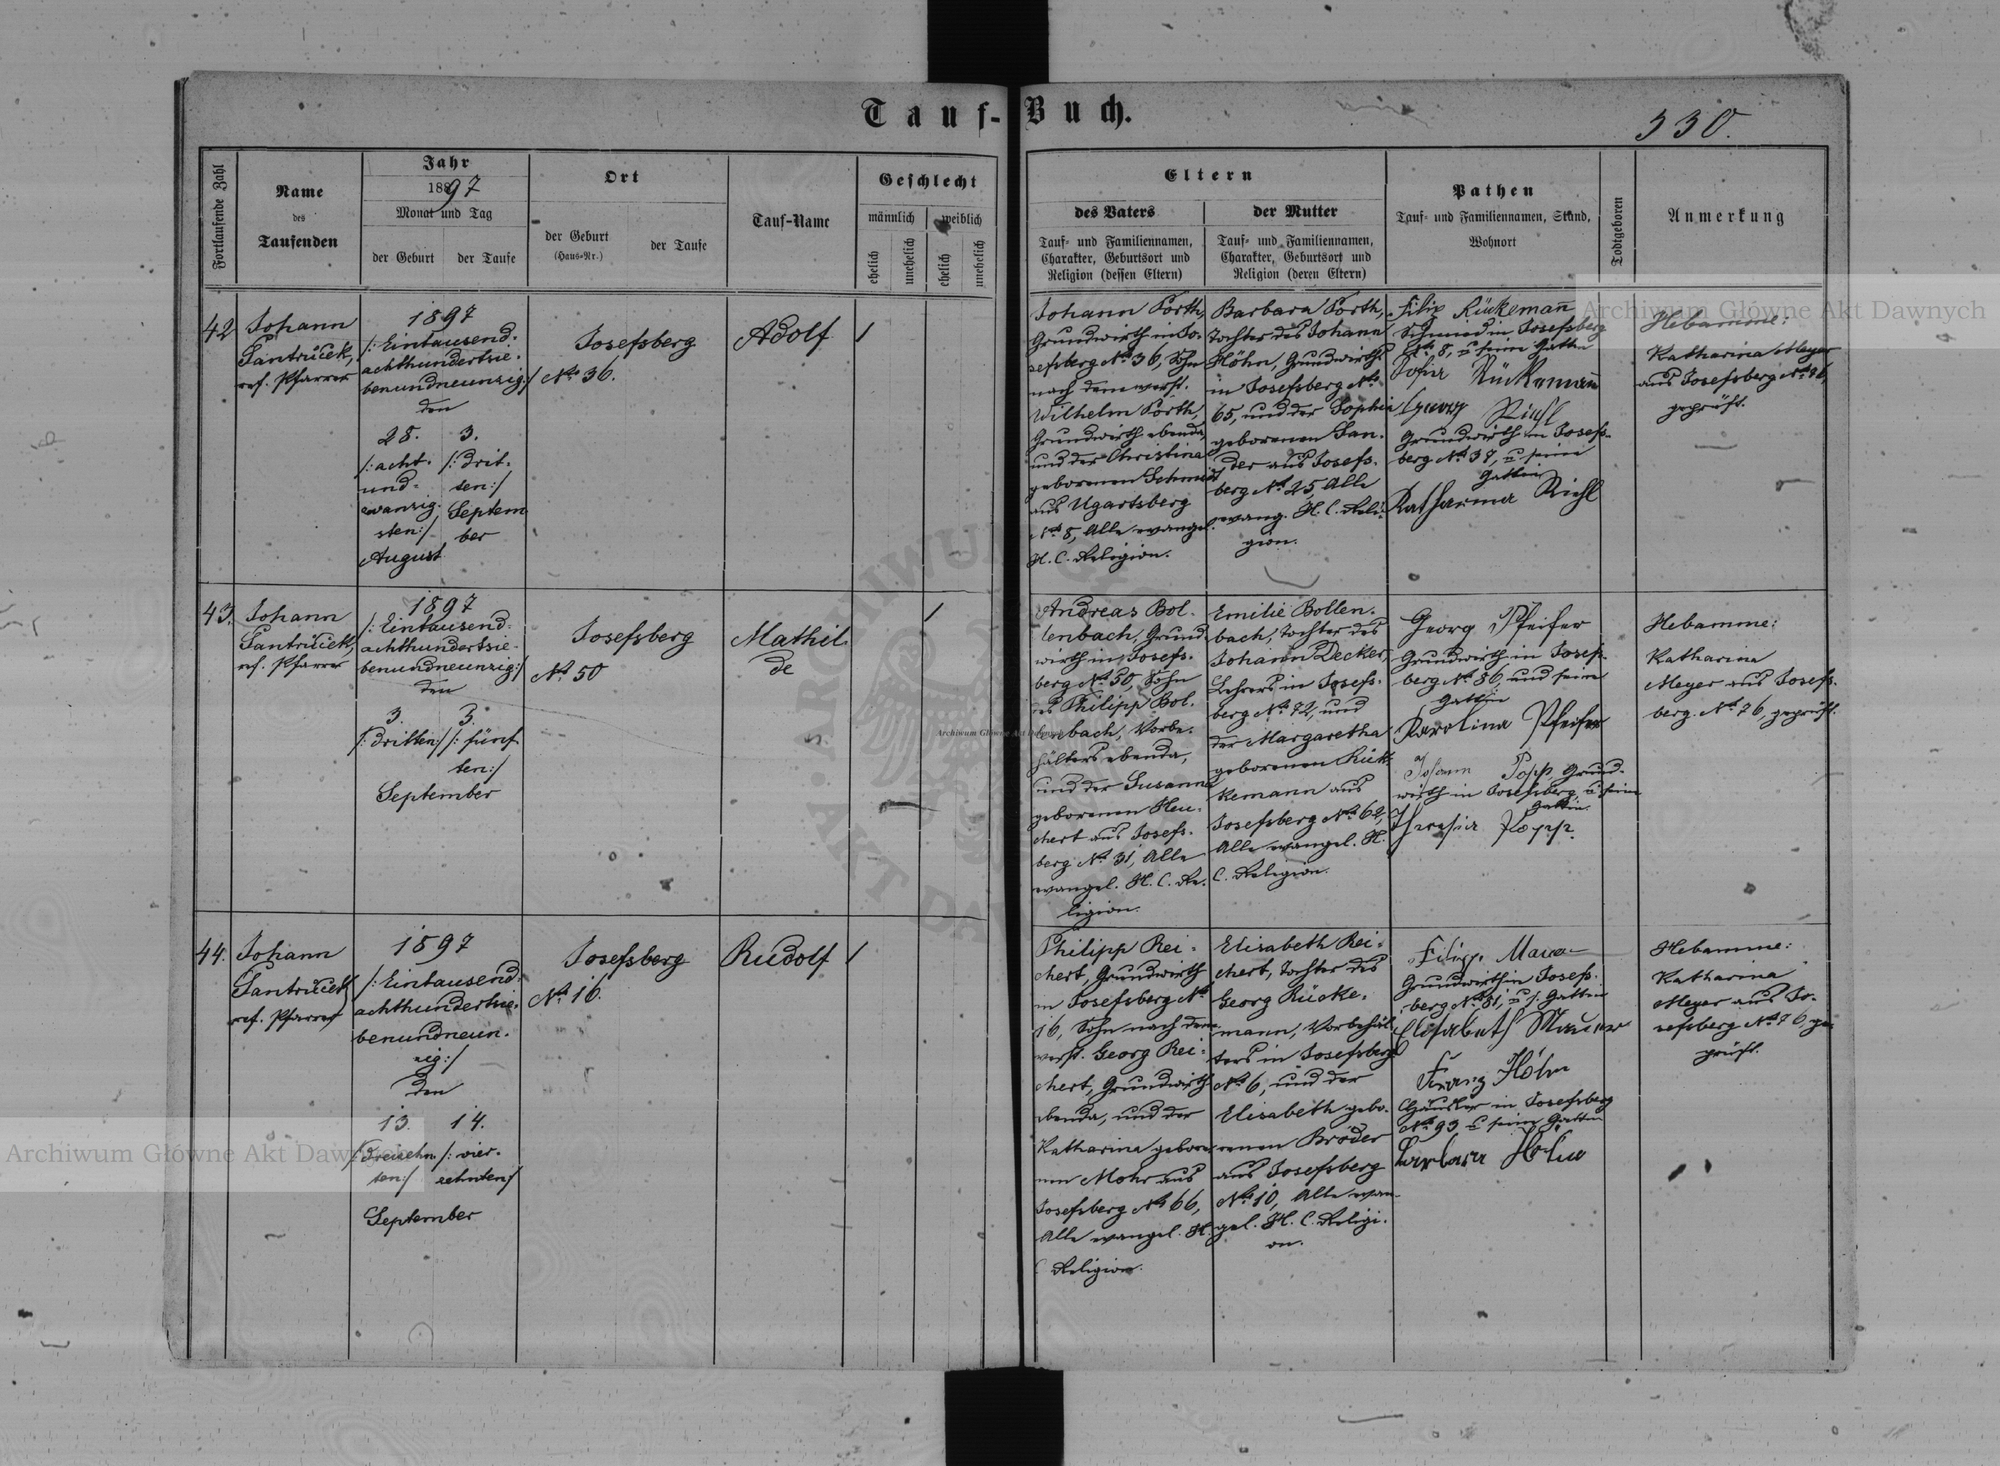 Tauf-Buch.
330.
Fortlaufende Zahl
Name
des
Taufenden
Jahr
18897
Monat und Tag
der Geburt
der Taufe
Ort
der Geburt
(Haus-Nr.)
der Taufe
Tauf-Name
Geschlecht
männlich
weiblich
ehelich
unehelich
ehelich
unehelich
Eltern
des Vaters
Tauf- und Familiennamen,
Charakter, Geburtsort und
Religion (dessen Eltern)
der Mutter
Tauf- und Familiennamen,
Charakter, Geburtsort und
Religion (deren Eltern)
Pathen
Tauf- und Familiennamen, Stand,
Wohnort
Todtgeboren
Anmerkung
42
Johann
Santrůček,
ref. Pfarrer
1897
/: Eintausend-
achthundertsie-
benundneunzig:/
den
28.
/: acht-
und-
zwanzig-
sten:/
August
3.
/: drit-
ten:/
Septem
ber
Josefsberg
No. 36.
Adolf
/
Johann Porth,
Grundwirth in Jo-
sefsberg No. 36, Sohn
nach dem verst.
Wilhelm Porth,
Grundwirth ebenda,
und der Christina
geborenen Schmidt
aus Ugartsberg
No. 8, Alle evangel.
H. C. Religion.
Barbara Porth,
Tochter des Johann
Höhn, Grundwirths
in Josefsberg No.
65, und der Sophia
geborenen San-
der aus Josefs-
berg No. 25, Alle
evang. H. C. Reli-
gion.
Filip Rückemann
Schmied in Josefsberg
No. 8, u. seine Gattin
Sofia Rückemann
Georg Riehl
Grundwirth in Josefs-
berg No. 37, u. seine
Gattin
Katharina Riehl
Hebamme:
Katharina Meyer
aus Josefsberg No. 76,
geprüft.
43.
Johann
Santrůček,
ref. Pfarrer
1897
/: Eintausend-
achthundertsie-
benundneunzig:/
den
3.
/: dritten:/
3.
/: fünf
ten:/
September
Josefsberg
No. 50
Mathil
de
/
Andreas Bol-
lenbach, Grund-
wirth in Josefs-
berg No. 50, Sohn
des Philipp Bol-
lenbach, Vorbe-
hälters ebenda,
und der Susanna
geborenen Heu-
chert aus Josefs-
berg No. 31, Alle
evangel. H. C. Re-
ligion.
Emilie Bollen-
bach, Tochter des
Johann Decker,
Lehrers in Josefs-
berg No. 72, und
der Margaretha
geborenen Rük-
kemann aus
Josefsberg No. 62,
Alle evangel. H.
C. Religion.
Georg Pfeifer
Grundwirth in Josefs-
berg No. 86, und seine
Gattin
Karolina Pfeifer
Johann Popp, Grund-
wirth in Josefsberg, u. seine
Gattin
Theresia Popp.
Hebamme:
Katharina
Meyer aus Josefs-
berg No. 76, geprüft.
44.
Johann
Santrůček
ref. Pfarrer
1897
/: Eintausend-
achthundertsie-
benundneun-
zig:/
den
13.
/: dreizehn
ten:/
14.
/: vier-
zehnten:/
September
Josefsberg
No. 16.
Rudolf
/
Philipp Rei-
chert, Grundwirth
in Josefsberg No.
16, Sohn nach dem
verst. Georg Rei-
chert, Grundwirth
ebenda, und der
Katharina gebore-
nen Mohr aus
Josefsberg No. 66,
Alle evangel. H.
C. Religion.
Elisabeth Rei-
chert, Tochter des
Georg Rücke-
mann, Vorbehäl-
ters in Josefsberg
No. 6, und der
Elisabeth gebo-
renen Bröder
aus Josefsberg
No. 10, Alle evan-
gel. H. C. Religi-
on.
Filipp Mauer
Grundwirth in Josefs-
berg No. 81, u. s. Gattin
Elisabeth Mauer
Franz Höhn
Häusler in Josefsberg
No. 93 u. seine Gattin
Barbara Höhn
Hebamme:
Katharina
Meyer aus Jo-
sefsberg No. 76, ge-
prüft.
Archiwum Główne Akt Dawnych
Archiwum Główne Akt Dawnych
Archiwum Główne Akt Dawnych